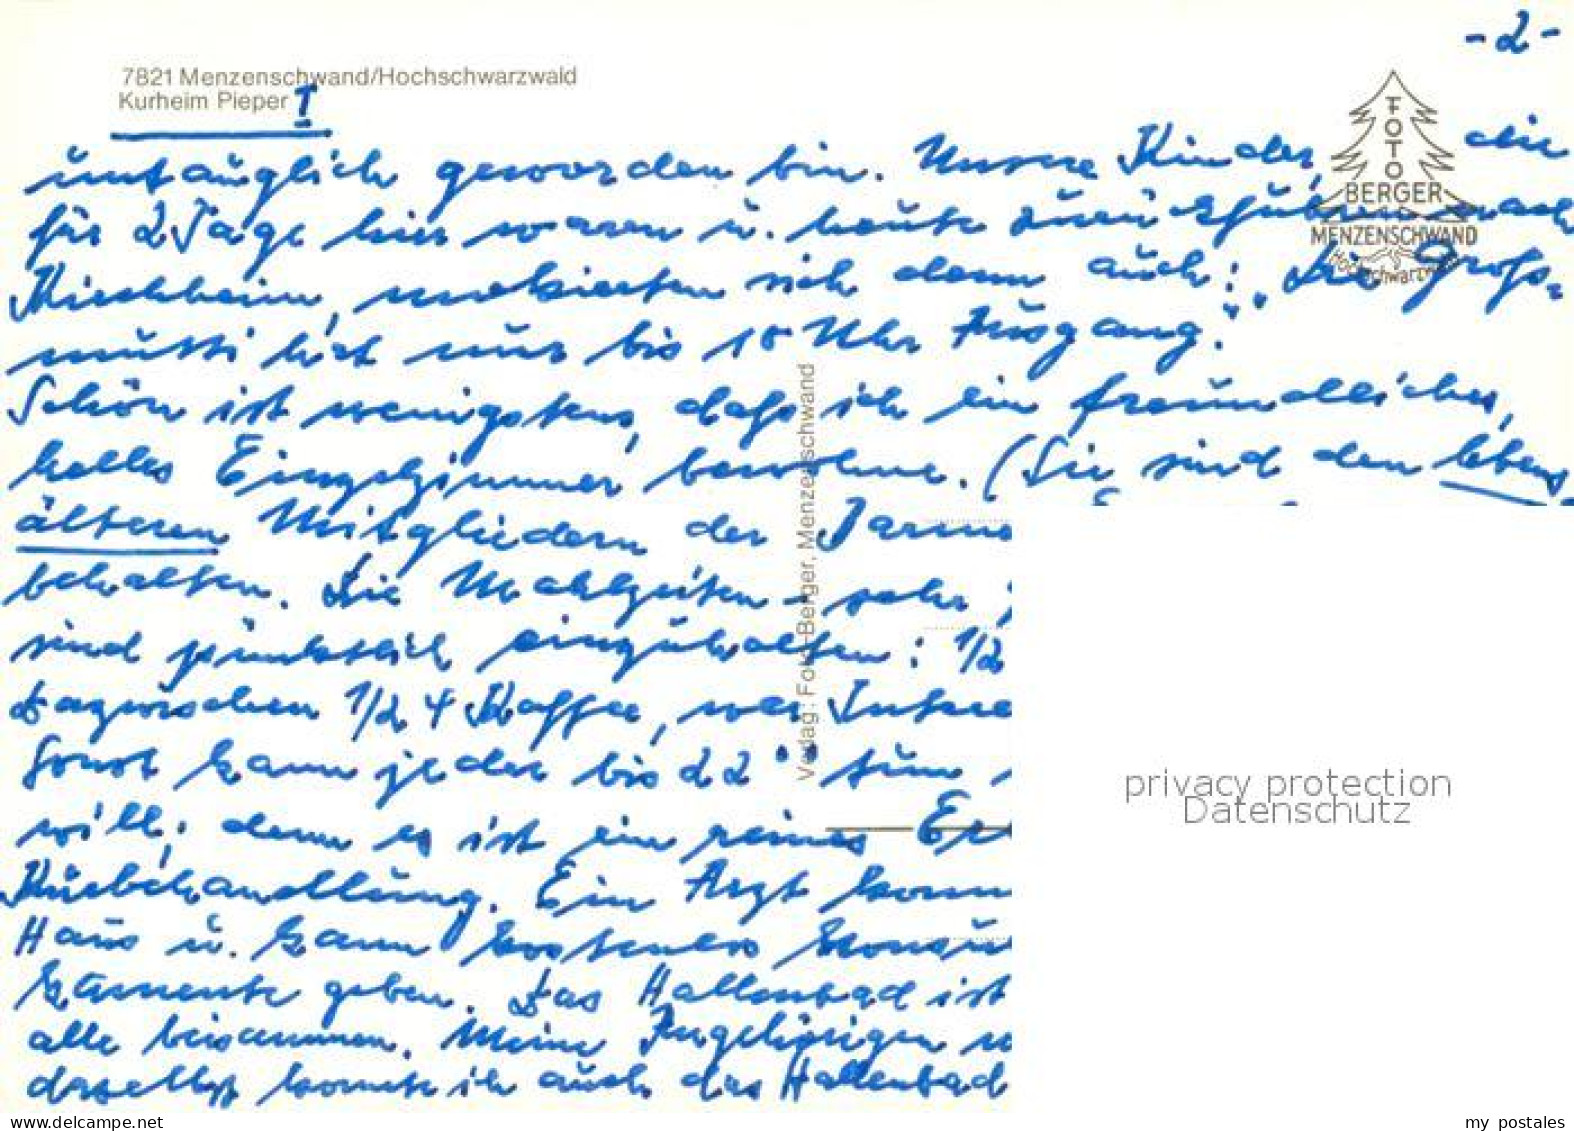 - 2 -
7821 Menzenschwand/Hochschwarzwald
Kurheim Pieper I
FOTO
BERGER
MENZENSCHWAND
Hochschwarzwald
untauglich geworden bin. Unsere Kinder, die
für 2 Tage hier waren u. heute zurückfuhren nach
Kirchheim, mokierten sich denn auch: "Die Groß-
mutti hat nur bis 10 Uhr Ausgang."
Schön ist wenigstens, daß ich ein freundliches,
helles Einzelzimmer bewohne. (Sie sind den lebens
älteren Mitgliedern der
behalten. Die Mahlzeiten - sehr
sind pünktlich einzuhalten: 1/2
Dazwischen 1/2 4 Kaffee, wer
Sonst kann jeder bis 22°° tun
will; denn es ist ein reines
Kurbehandlung. Ein Arzt
Haus u. kann kostenlos
geben. Das Hallenbad ist
alle beisammen. Meine Angehörigen
daselbst konnte ich auch das Hallenbad
Verlag: Foto-Berger, Menzenschwand
privacy protection
Datenschutz
www.delcampe.net
my_postales